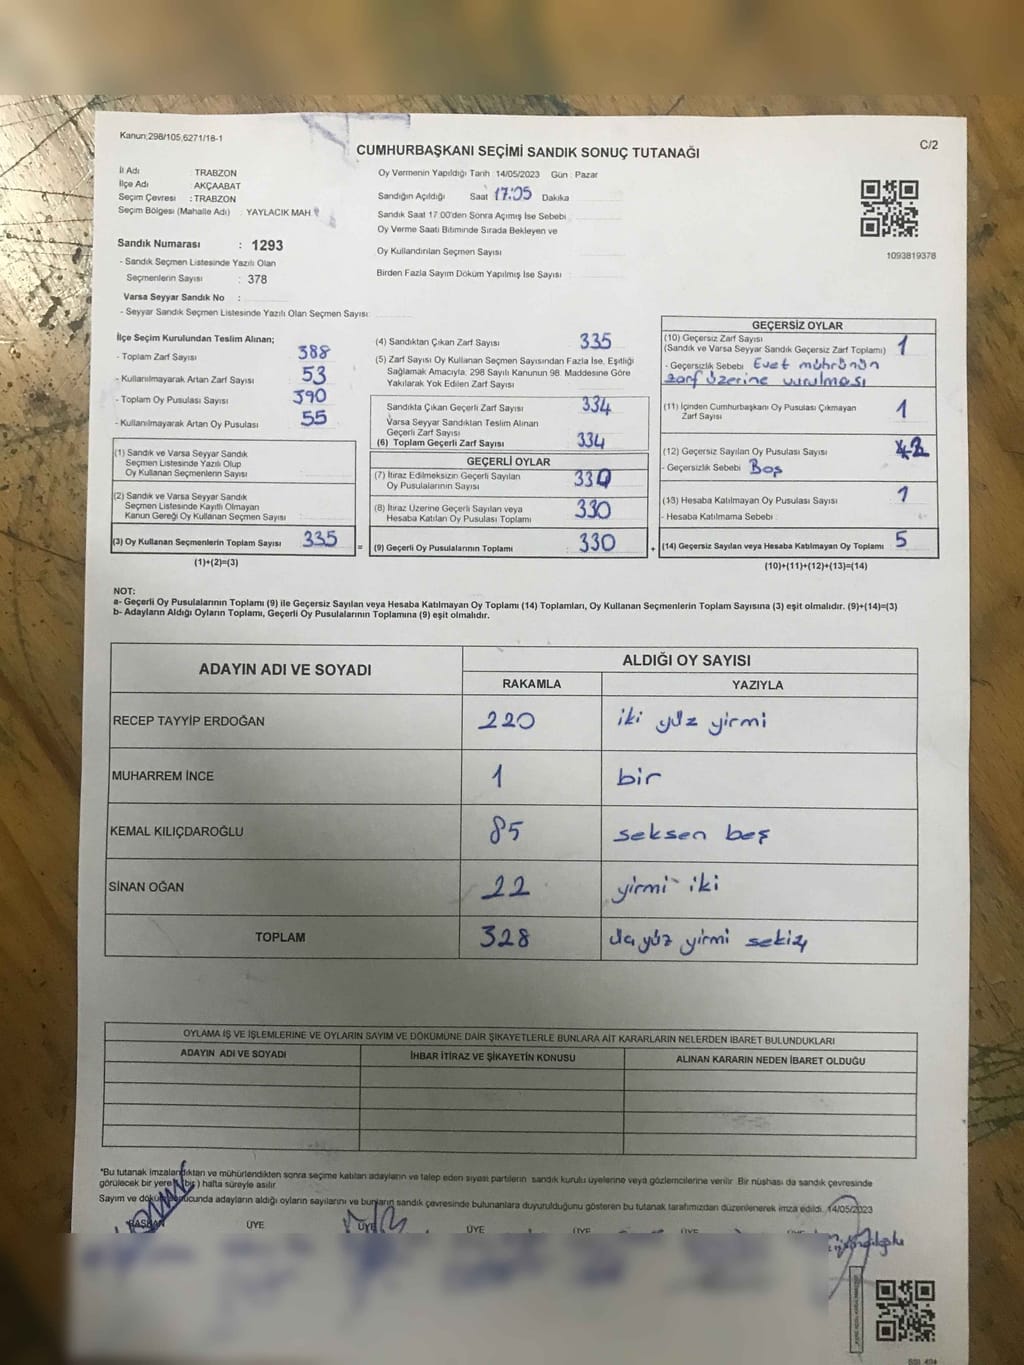 Kanun;298/105,6271/18-1
C/2
CUMHURBAŞKANI SEÇİMİ SANDIK SONUÇ TUTANAĞI
İl Adı TRABZON
İlçe Adı AKÇAABAT
Seçim Çevresi : TRABZON
Seçim Bölgesi (Mahalle Adı) : YAYLACIK MAH
Oy Vermenin Yapıldığı Tarih : 14/05/2023 Gün : Pazar
Sandığın Açıldığı Saat 17:05 Dakika
Sandık Saat 17:00'den Sonra Açımış İse Sebebi :
Oy Verme Saati Bitiminde Sırada Bekleyen ve
Oy Kullandırılan Seçmen Sayısı
Birden Fazla Sayım Döküm Yapılmış İse Sayısı :
1093819378
Sandık Numarası : 1293
- Sandık Seçmen Listesinde Yazılı Olan
Seçmenlerin Sayısı : 378
Varsa Seyyar Sandık No :
- Seyyar Sandık Seçmen Listesinde Yazılı Olan Seçmen Sayısı:
İlçe Seçim Kurulundan Teslim Alınan;
- Toplam Zarf Sayısı 388
- Kullanılmayarak Artan Zarf Sayısı : 53
- Toplam Oy Pusulası Sayısı 390
- Kullanılmayarak Artan Oy Pusulası : 55
(1) Sandık ve Varsa Seyyar Sandık
Seçmen Listesinde Yazılı Olup
Oy Kullanan Seçmenlerin Sayısı
(2) Sandık ve Varsa Seyyar Sandık
Seçmen Listesinde Kayıtlı Olmayan
Kanun Gereği Oy Kullanan Seçmen Sayısı :
(3) Oy Kullanan Seçmenlerin Toplam Sayısı : 335
(1)+(2)=(3)
(4) Sandıktan Çıkan Zarf Sayısı : 335
(5) Zarf Sayısı Oy Kullanan Seçmen Sayısından Fazla İse, Eşitliği
Sağlamak Amacıyla, 298 Sayılı Kanunun 98. Maddesine Göre
Yakılarak Yok Edilen Zarf Sayısı :
Sandıkta Çıkan Geçerli Zarf Sayısı : 334
Varsa Seyyar Sandıktan Teslim Alınan
Geçerli Zarf Sayısı
(6) Toplam Geçerli Zarf Sayısı 334
=
GEÇERLİ OYLAR
(7) İtiraz Edilmeksizin Geçerli Sayılan
Oy Pusulalarının Sayısı : 330
(8) İtiraz Üzerine Geçerli Sayılan veya
Hesaba Katılan Oy Pusulası Toplamı : 330
(9) Geçerli Oy Pusulalarının Toplamı : 330
+
GEÇERSİZ OYLAR
(10) Geçersiz Zarf Sayısı
(Sandık ve Varsa Seyyar Sandık Geçersiz Zarf Toplamı) : 1
- Geçersizlik Sebebi : Evet mührünün
zarf üzerine vurulması
(11) İçinden Cumhurbaşkanı Oy Pusulası Çıkmayan
Zarf Sayısı : 1
(12) Geçersiz Sayılan Oy Pusulası Sayısı : 2
- Geçersizlik Sebebi : Boş
(13) Hesaba Katılmayan Oy Pusulası Sayısı : 1
- Hesaba Katılmama Sebebi :
(14) Geçersiz Sayılan veya Hesaba Katılmayan Oy Toplamı : 5
(10)+(11)+(12)+(13)=(14)
NOT:
a- Geçerli Oy Pusulalarının Toplamı (9) ile Geçersiz Sayılan veya Hesaba Katılmayan Oy Toplamı (14) Toplamları, Oy Kullanan Seçmenlerin Toplam Sayısına (3) eşit olmalıdır. (9)+(14)=(3)
b- Adayların Aldığı Oyların Toplamı, Geçerli Oy Pusulalarının Toplamına (9) eşit olmalıdır.
ADAYIN ADI VE SOYADI ALDIĞI OY SAYISI
RAKAMLA YAZIYLA
RECEP TAYYİP ERDOĞAN 220 iki yüz yirmi
MUHARREM İNCE 1 bir
KEMAL KILIÇDAROĞLU 85 seksen beş
SİNAN OĞAN 22 yirmi iki
TOPLAM 328 yüz yirmi sekiz
OYLAMA İŞ VE İŞLEMLERİNE VE OYLARIN SAYIM VE DÖKÜMÜNE DAİR ŞİKAYETLERLE BUNLARA AİT KARARLARIN NELERDEN İBARET BULUNDUKLARI
ADAYIN ADI VE SOYADI İHBAR İTİRAZ VE ŞİKAYETİN KONUSU ALINAN KARARIN NEDEN İBARET OLDUĞU
*Bu tutanak imzalandıktan ve mühürlendikten sonra seçime katılan adayların ve talep eden siyasi partilerin sandık kurulu üyelerine veya gözlemcilerine verilir. Bir nüshası da sandık çevresinde
görülecek bir yere (bir) hafta süreyle asılır.
Sayım ve döküm sonucunda adayların aldığı oyların sayılarını ve bunların sandık çevresinde bulunanlara duyurulduğunu gösteren bu tutanak tarafımızdan düzenlenerek imza edildi. 14/05/2023
BAŞKAN ÜYE ÜYE ÜYE ÜYE ÜYE